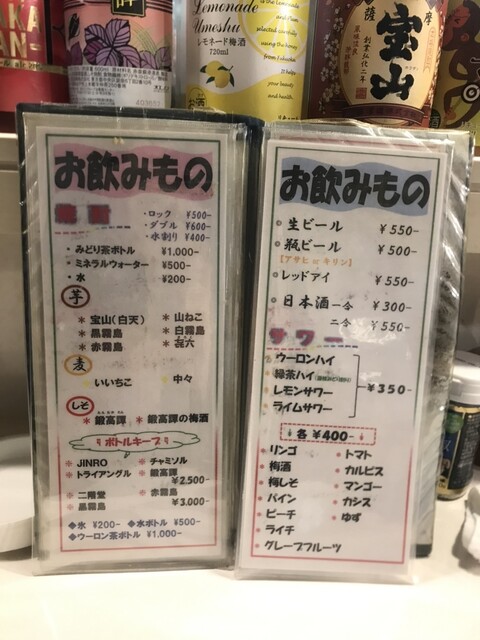 Lemonade
Umeshu
レモネード梅酒
720ml
薩摩
宝山
お飲みもの
焼酎
・ロック ¥500-
・ダブル ¥600-
・水割り ¥400-
・みどり茶ボトル ¥1,000-
・ミネラルウォーター ¥500-
・水 ¥200-
芋
＊宝山(白天) ＊山ねこ
＊黒霧島 ＊白霧島
＊赤霧島 ＊㐂六
麦
いいちこ 中々
しそ
＊鍛高譚 ＊鍛高譚の梅酒
ボトルキープ
＊JINRO ＊チャミソル
＊トライアングル ＊鍛高譚
¥2,500-
＊二階堂 ＊赤霧島
＊黒霧島 ¥3,000-
◆氷 ¥200- ◆水ボトル ¥500-
◆ウーロン茶ボトル ¥1,000-
お飲みもの
生ビール ¥550-
瓶ビール ¥500-
【アサヒorキリン】
レッドアイ ¥550-
日本酒 一合 ¥300-
二合 ¥550-
サワー
ウーロンハイ
緑茶ハイ
レモンサワー
ライムサワー
¥350-
各¥400-
リンゴ トマト
梅酒 カルピス
梅しそ マンゴー
パイン カシス
ピーチ ゆず
ライチ
グレープフルーツ